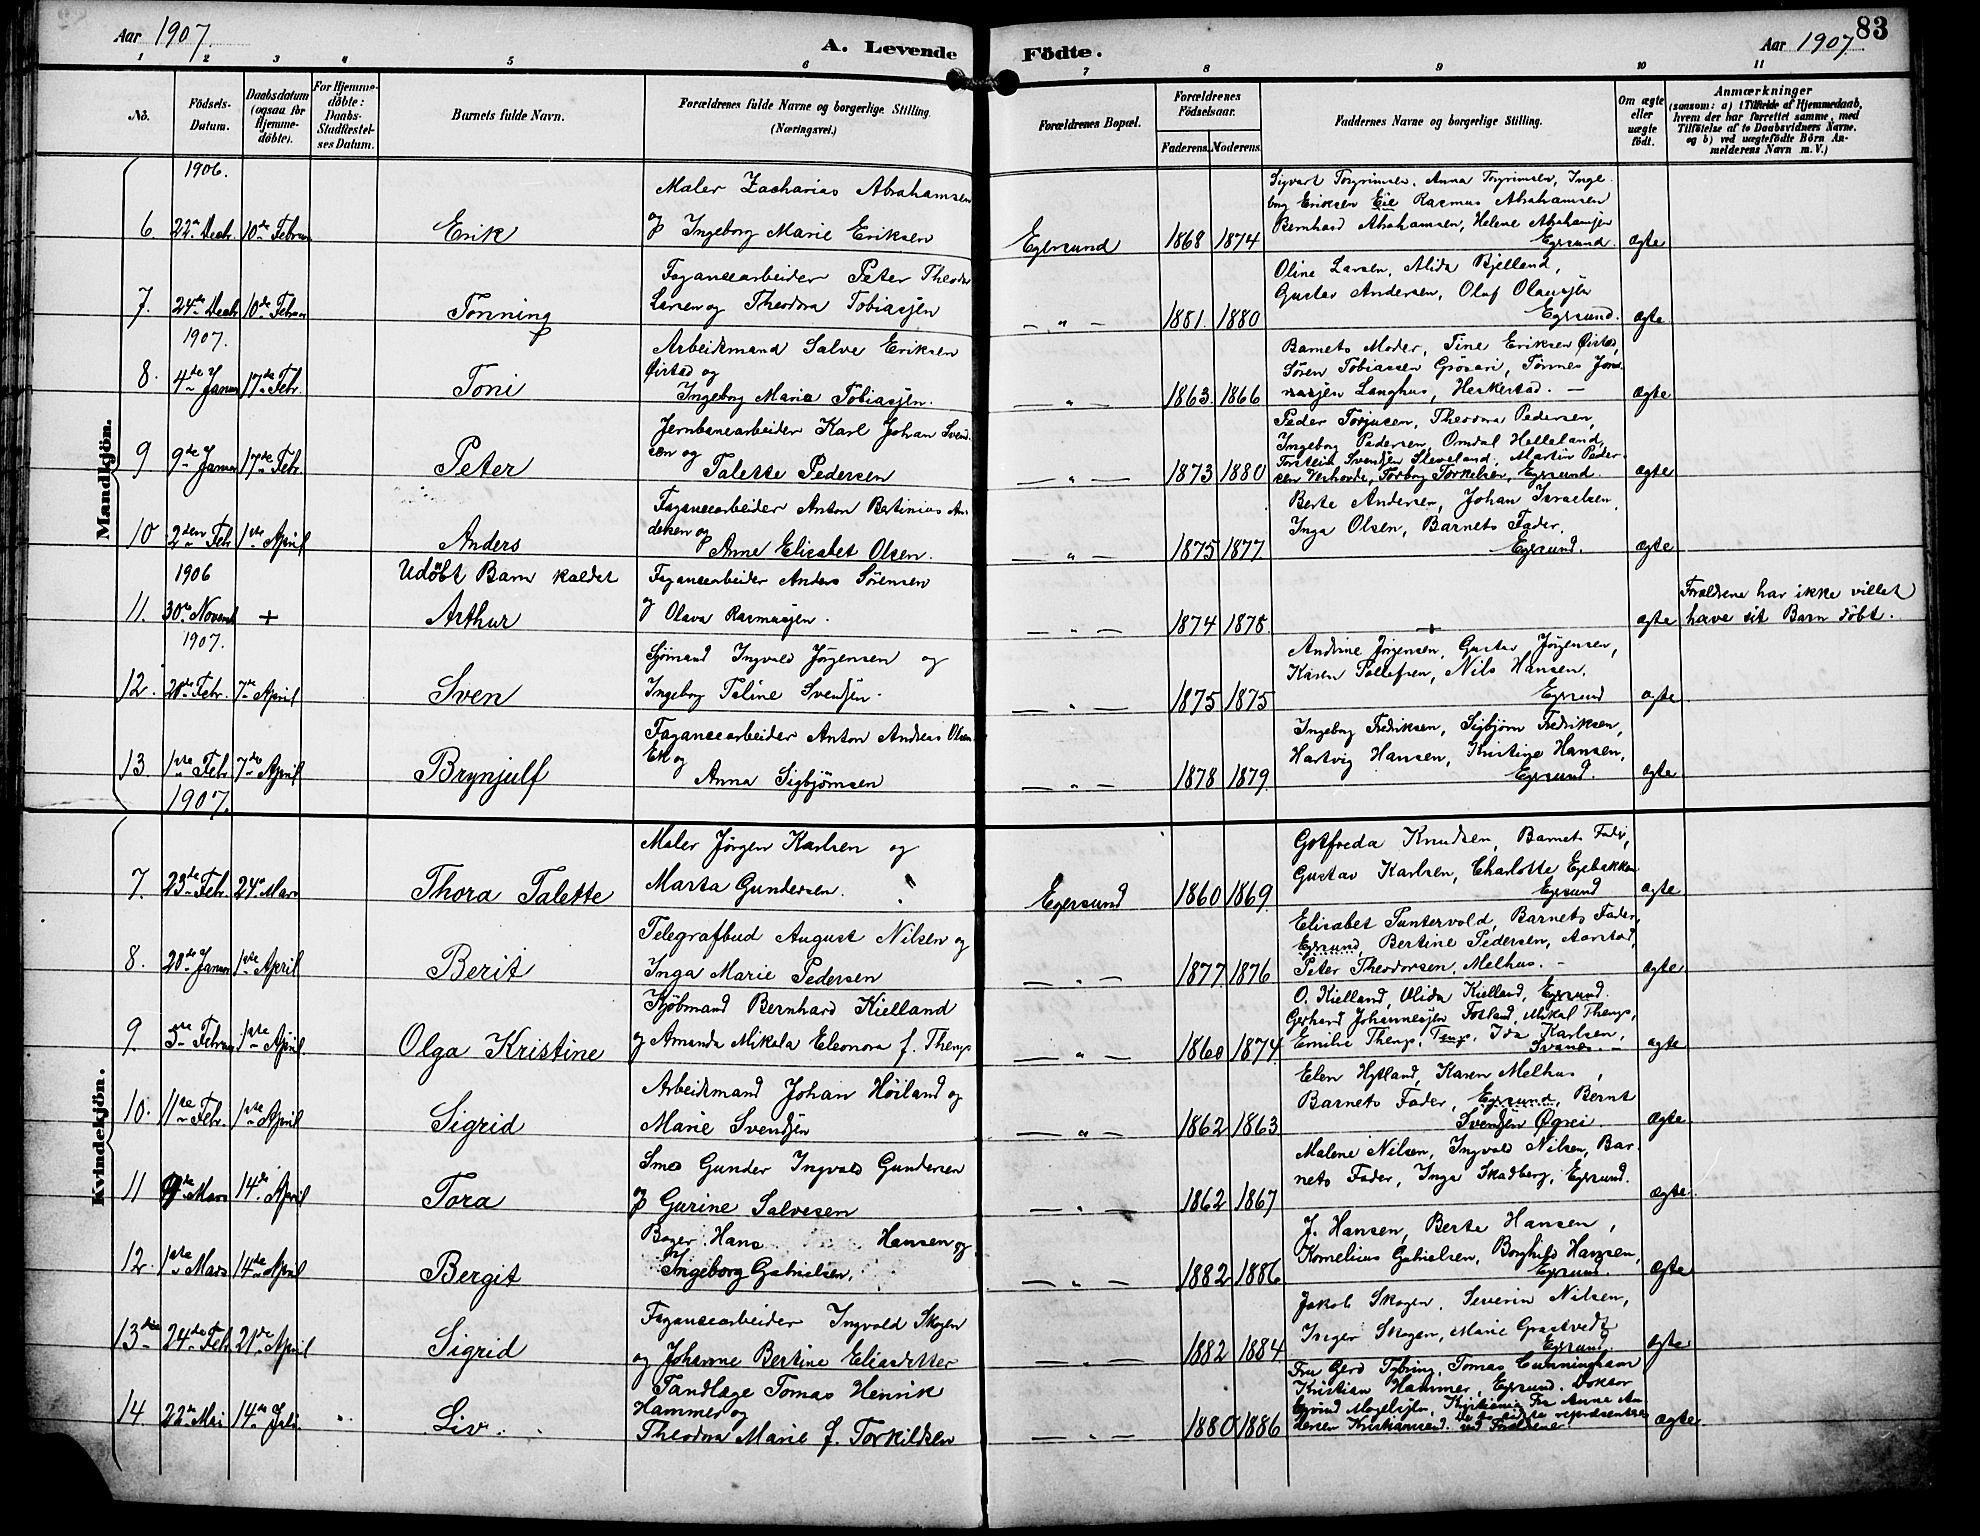 Aar 1907.
A. Levende Födte.
Aar 1907.
83
1 2 3 4 5 6 7 8 9 10 11
No.
Födsels-Datum.
Daabsdatum (ogsaa for Hjemme-döbte).
For Hjemme-döbte: Daabs-Stadfæstel-ses Datum.
Barnets fulde Navn.
Forældrenes fulde Navne og borgerlige Stilling.
(Næringsvei.)
Forældrenes Bopæl.
Forældrenes Födselsaar.
Faderens. Moderens.
Faddernes Navne og borgerlige Stilling.
Om ægte eller uægte födt.
Anmærkninger
(saasom: a) i Tilfælde af Hjemmedaab,
hvem der har forrettet samme, med
Tilföielse af to Daabsvidners Navne.
og b) ved uægtefödte Börn An-
melderens Navn m. V.)
Mandkjön.
1906.
Maler Zacharias Abrahamsen
Sigvart Torgrimsen, Anna Torgrimsen, Inge-
borg Eriksen Eie Rasmus Abrahamsen
6 22de Decbr. 10de Februar Erik og Ingeborg Marie Eriksen Egersund 1868 1874 Bernhard Abrahamsen, Helene Abrahamsen
Egersund. ægte
Fayancearbeider Peter Theodor
Oline Larsen, Alida Bjelland,
7. 24de Decbr 10de Februar Tönning Larsen og Theodora Tobiasjen — " — 1881. 1880 Gustav Andersen, Oluf Olausjen
Egersund. ægte
1907.
Arbeidsmand Salve Eriksen
Barnets Moder, Tine Eriksen Örstad,
Örstad og
Sören Tobiassen Grösari, Tönnes Jon-
8. 4de Januar 17de Febr. Toni Ingeborg Maria Tobiasjen. — " — 1863 1866 nasjen Langhus, Heskestad. — ægte
Jernbanearbeider Karl Johan Svend-
Peder Torjusen, Theodora Pedersen,
sen og
Ingeborg Pedersen, Omdal Helleland,
9 9de Januar 17de Febr. Peter Talette Pedersen — " — 1873 1880 Torstein Svendsen Sleveland, Martin Peder-
sen, Torborg Torkelsen, Egersund. ægte
Fayancearbeider Anton Bertinius An-
Berte Andersen, Johan Israelsen,
dersen og
Inga Olsen, Barnets Fader,
10 2den Febr 1ste April Anders Anne Elisabet Olsen. — " — 1875 1877 Egersund. ægte
1906 Udöbt Barn kaldet Fayancearbeider Anders Sörensen
Forældrene har ikke villet
11. 30te Novembr + Arthur og Olava Rasmusjen. — " — 1874 1878. + ægte have sit Barn döbt.
1907.
Sjömand Ingvald Jörgensen og
Andrine Jörgensen, Gustav Jörgensen,
Karen Tollefsen, Nils Hansen,
12. 20de Febr. 7de April Sven Ingeborg Taline Svendsen. — " — 1875 1875 Egersund ægte
Fayancearbeider Anton Andreas Olsen
Ingeborg Fredriksen, Sigbjörn Fredriksen,
Ek og
Hartvig Hansen, Kristine Hansen,
13 1ste Febr. 7de April Brynjulf Anna Sigbjörnsen — " — 1878 1879 Egersund. ægte
Kvindekjön.
1907.
Maler Jörgen Karlsen og
Gotfreda Knudsen, Barnets Fader,
Gustav Karlsen, Charlotte Egebakken
7. 23de Febr. 24de Mars Thora Talette Marta Gundersen. Egersund 1860 1869 Egersund ægte
Telegrafbud August Nilsen og
Elisabet Puntervold, Barnets Fader,
Egersund, Bertine Pedersen, Aarstad,
8. 20de Januar 1ste April Berit Inga Marie Pedersen — " — 1877 1876 Peter Theodorsen, Melhus. — ægte
Kjöbmand Bernhard Kielland
O. Kielland, Olida Kielland, Egersund.
Gerhard Johannesjen Fotland, Mikal Thengs,
9. 3die Februar 1ste April Olga Kristine og Amanda Mikala Eleonora f. Thengs — " — 1860 1874 Emilie Thengs, Tengs, Ida Karlsen,
Svanes. — ægte
Arbeidsmand Johan Höiland og
Elen Hytland, Karen Melhus,
Barnets Fader, Egersund, Bernt
10. 11te Febr. 1ste April Sigrid Marie Svendsen — " — 1862 1863 Svendsen Ögrei. ægte
Smed Gunder Ingvald Gundersen
Malene Nilsen, Ingvald Nilsen, Bar-
11 9de Mars 14de April Tora og Gurine Salvesen — " — 1862 1867 nets Fader, Inga Skadberg, Egersund. ægte.
Bager Hans Hansen og
J. Hansen, Berte Hansen,
Kornelius Gabrielsen, Borghild Hansen,
12. 1ste Mars 14de April Bergit Ingeborg Gabrielsen, — " — 1882 1886 Egersund. ægte
Fayancearbeider Ingvald Skogen
Jakob Skogen, Severin Nilsen,
Inger Skogen, Marie Grastvedt
13de 24de Febr. 21de April Sigrid og Johanne Bertine Eliasdatter — " — 1882 1884 Egersund. ægte
Tandlæge Tomas Henrik
Fru Gerd Tybring, Tomas Cunningham
Hammer og
Kristian Hammer, Egersund. Doktor
14. 22de Mai 14de Juli " Liv. Theodora Marie f. Torkildsen — " — 1880 1886 Eyvind Magelsjen, Kristiania Fru Anne An-
dersen Kristiansand. De to sidste repræsenteres
ved Forældrene. ægte